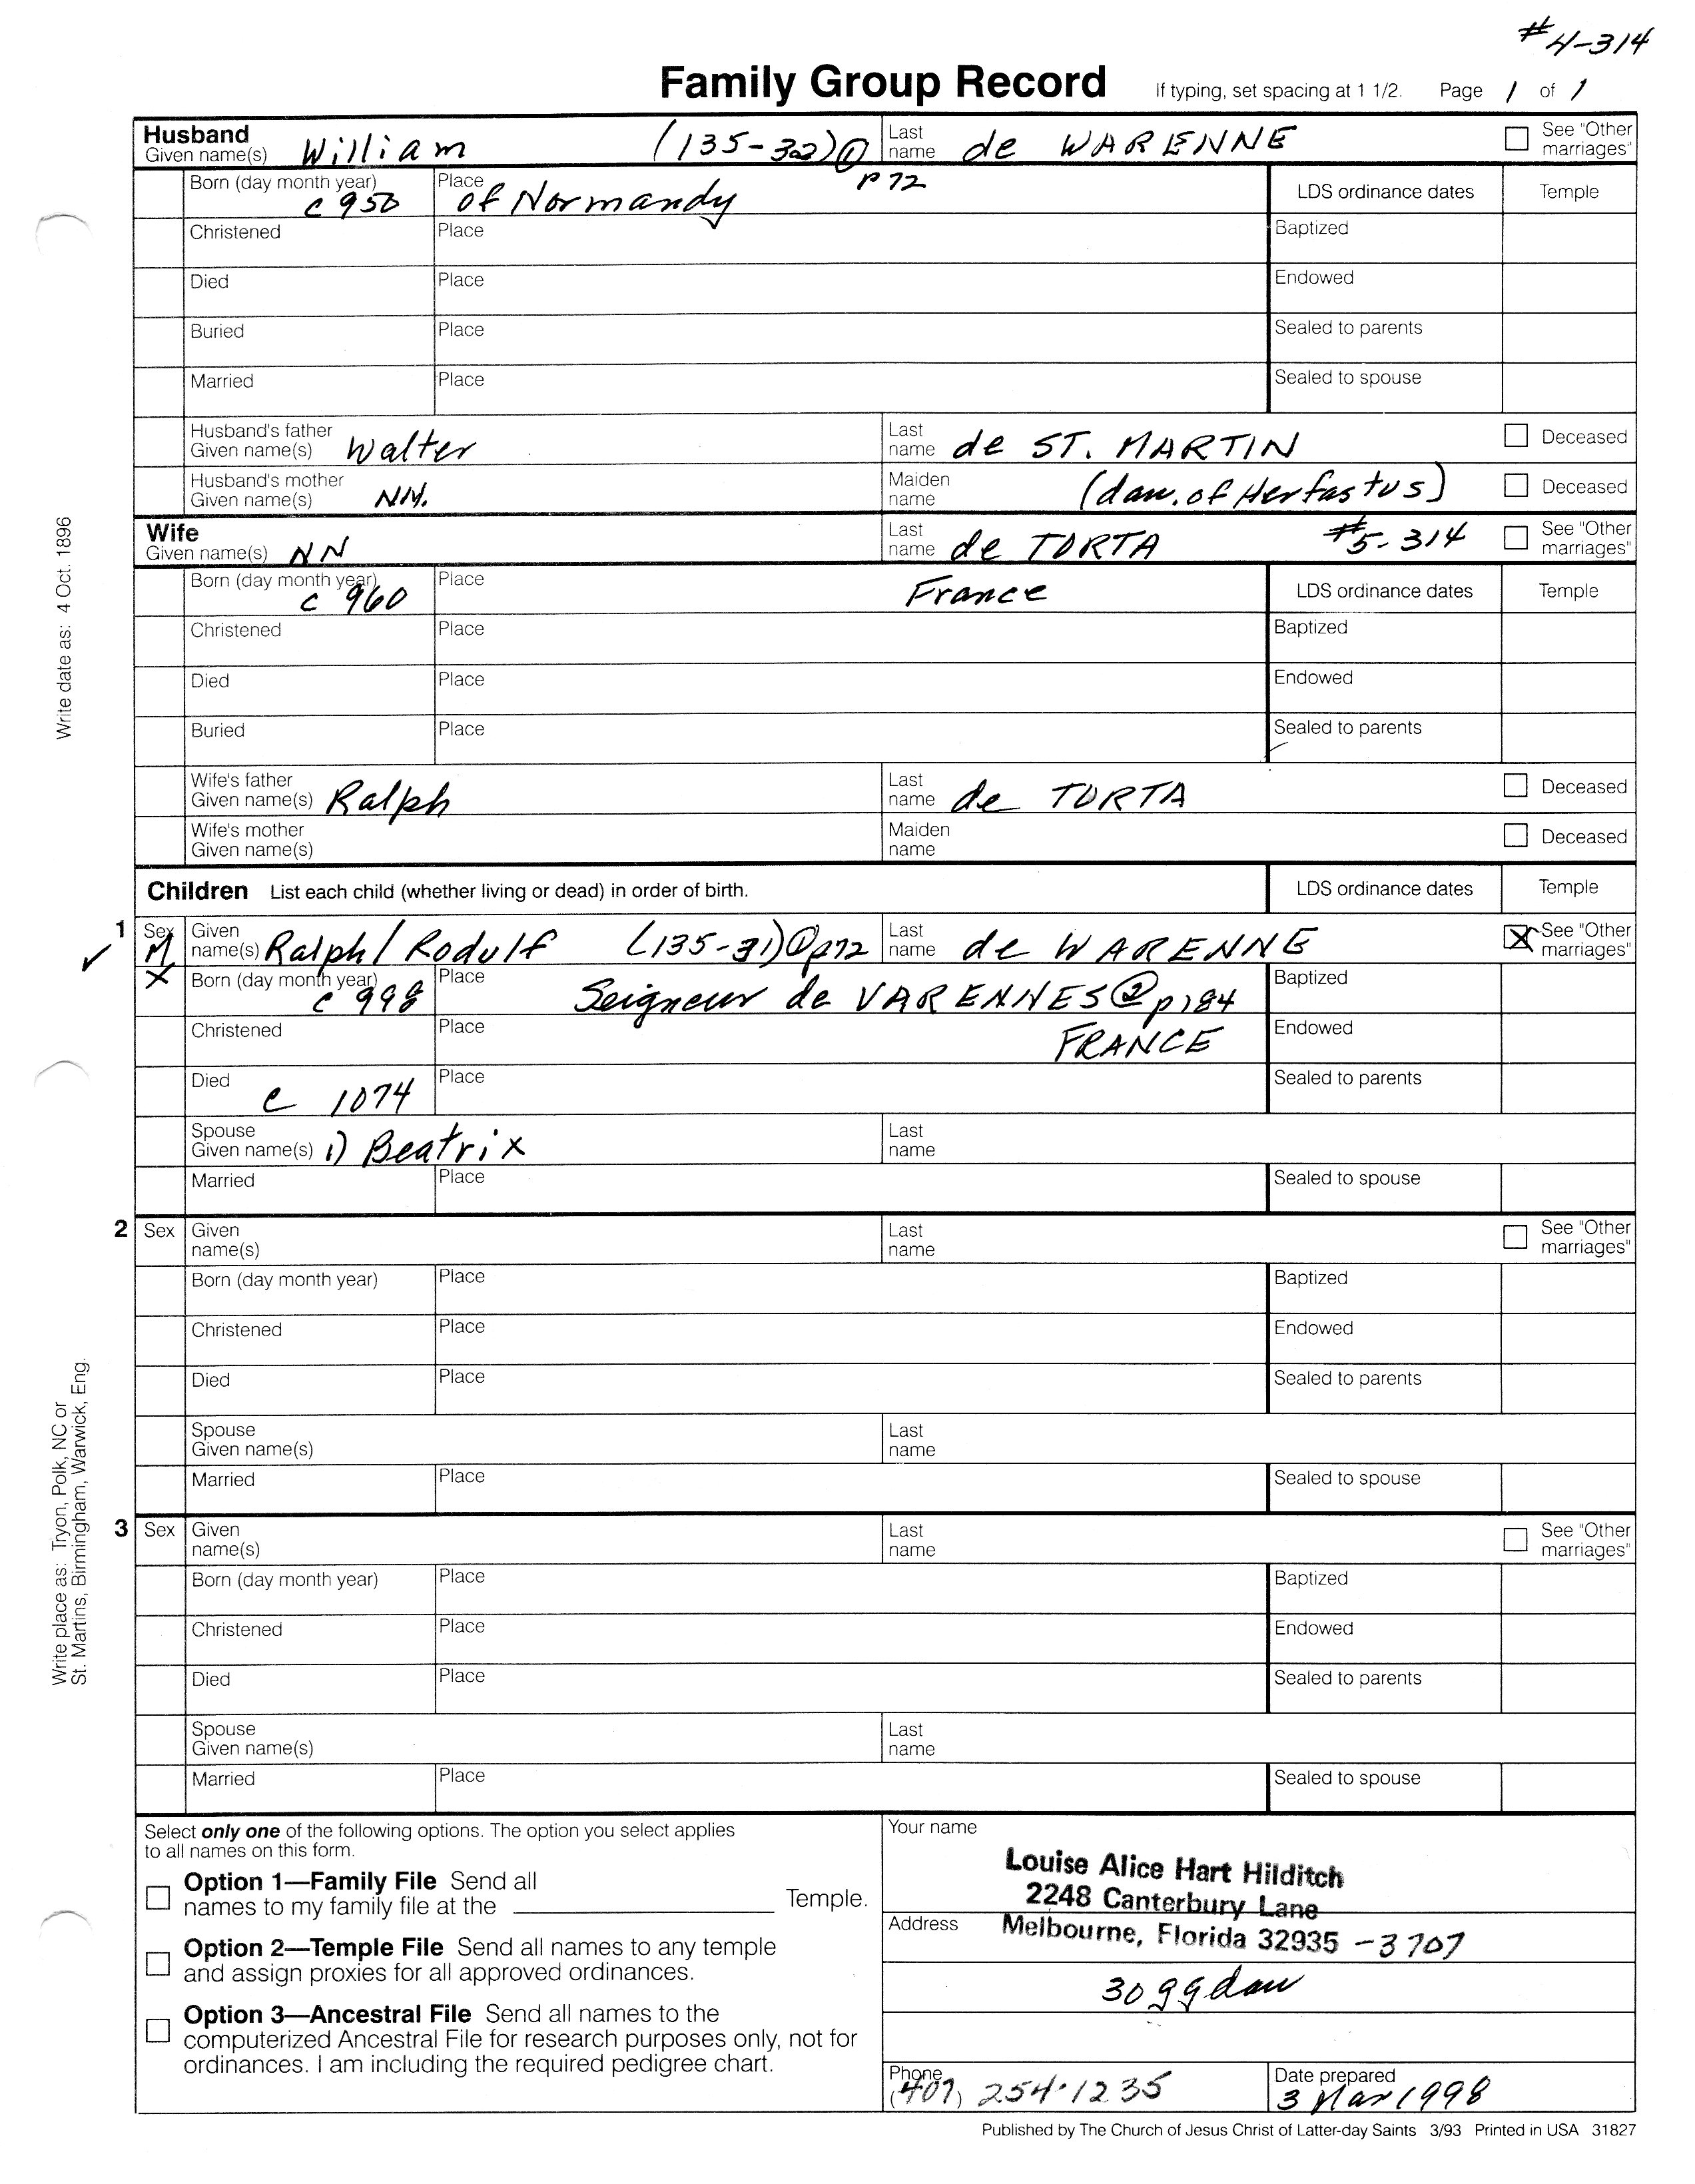 # 4-314
Family Group Record If typing, set spacing at 1 1/2. Page 1 of 1
Husband
Given name(s) William (135-32) ① p 72 Last name de WARENNE See "Other marriages"
Born (day month year) c 950 Place of Normandy LDS ordinance dates Temple
Christened Place Baptized
Died Place Endowed
Buried Place Sealed to parents
Married Place Sealed to spouse
Husband's father Given name(s) Walter Last name de ST. MARTIN Deceased
Husband's mother Given name(s) NN. Maiden name (dau. of Herfastus) Deceased
Wife
Given name(s) NN Last name de TORTA #5-314 See "Other marriages"
Born (day month year) c 960 Place France LDS ordinance dates Temple
Christened Place Baptized
Died Place Endowed
Buried Place Sealed to parents
Wife's father Given name(s) Ralph Last name de TORTA Deceased
Wife's mother Given name(s) Maiden name Deceased
Children List each child (whether living or dead) in order of birth. LDS ordinance dates Temple
1 Sex M Given name(s) Ralph/Rodulf (135-31) ① p72 Last name de WARENNE See "Other marriages"
Born (day month year) c 998 Place Seigneur de VARENNES ② p184 Baptized
Christened Place FRANCE Endowed
Died c 1074 Place Sealed to parents
Spouse Given name(s) 1) Beatrix Last name
Married Place Sealed to spouse
2 Sex Given name(s) Last name See "Other marriages"
Born (day month year) Place Baptized
Christened Place Endowed
Died Place Sealed to parents
Spouse Given name(s) Last name
Married Place Sealed to spouse
3 Sex Given name(s) Last name See "Other marriages"
Born (day month year) Place Baptized
Christened Place Endowed
Died Place Sealed to parents
Spouse Given name(s) Last name
Married Place Sealed to spouse
Select only one of the following options. The option you select applies
to all names on this form.
Option 1—Family File Send all
names to my family file at the Temple.
Option 2—Temple File Send all names to any temple
and assign proxies for all approved ordinances.
Option 3—Ancestral File Send all names to the
computerized Ancestral File for research purposes only, not for
ordinances. I am including the required pedigree chart.
Your name
Louise Alice Hart Hilditch
2248 Canterbury Lane
Address Melbourne, Florida 32935 -3707
30 gg dau
Phone (407) 254-1235 Date prepared 3 Mar 1998
Published by The Church of Jesus Christ of Latter-day Saints 3/93 Printed in USA 31827
Write date as: 4 Oct. 1896
Write place as: Tryon, Polk, NC or
St. Martins, Birmingham, Warwick, Eng.